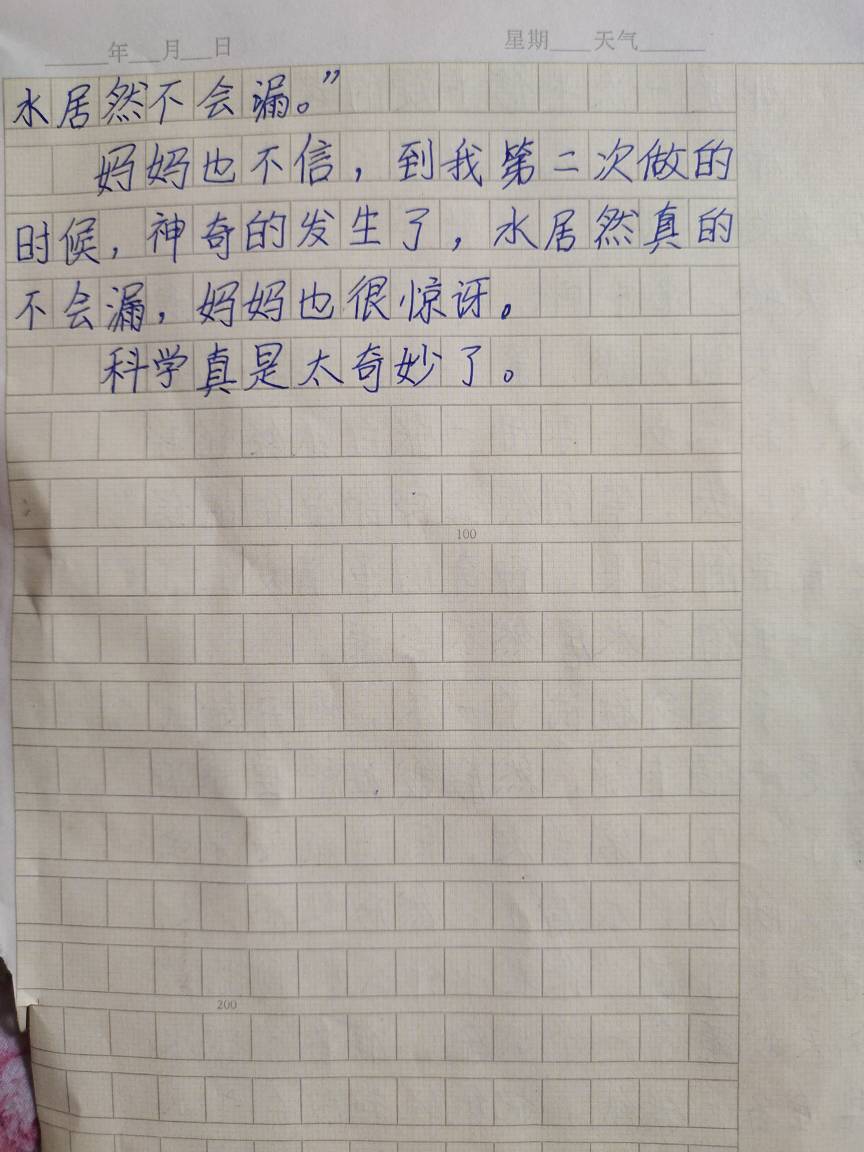 年 月 日 星期 天气
水居然不会漏。”
妈妈也不信，到我第二次做的
时候，神奇的发生了，水居然真的
不会漏，妈妈也很惊讶。
科学真是太奇妙了。
100
200